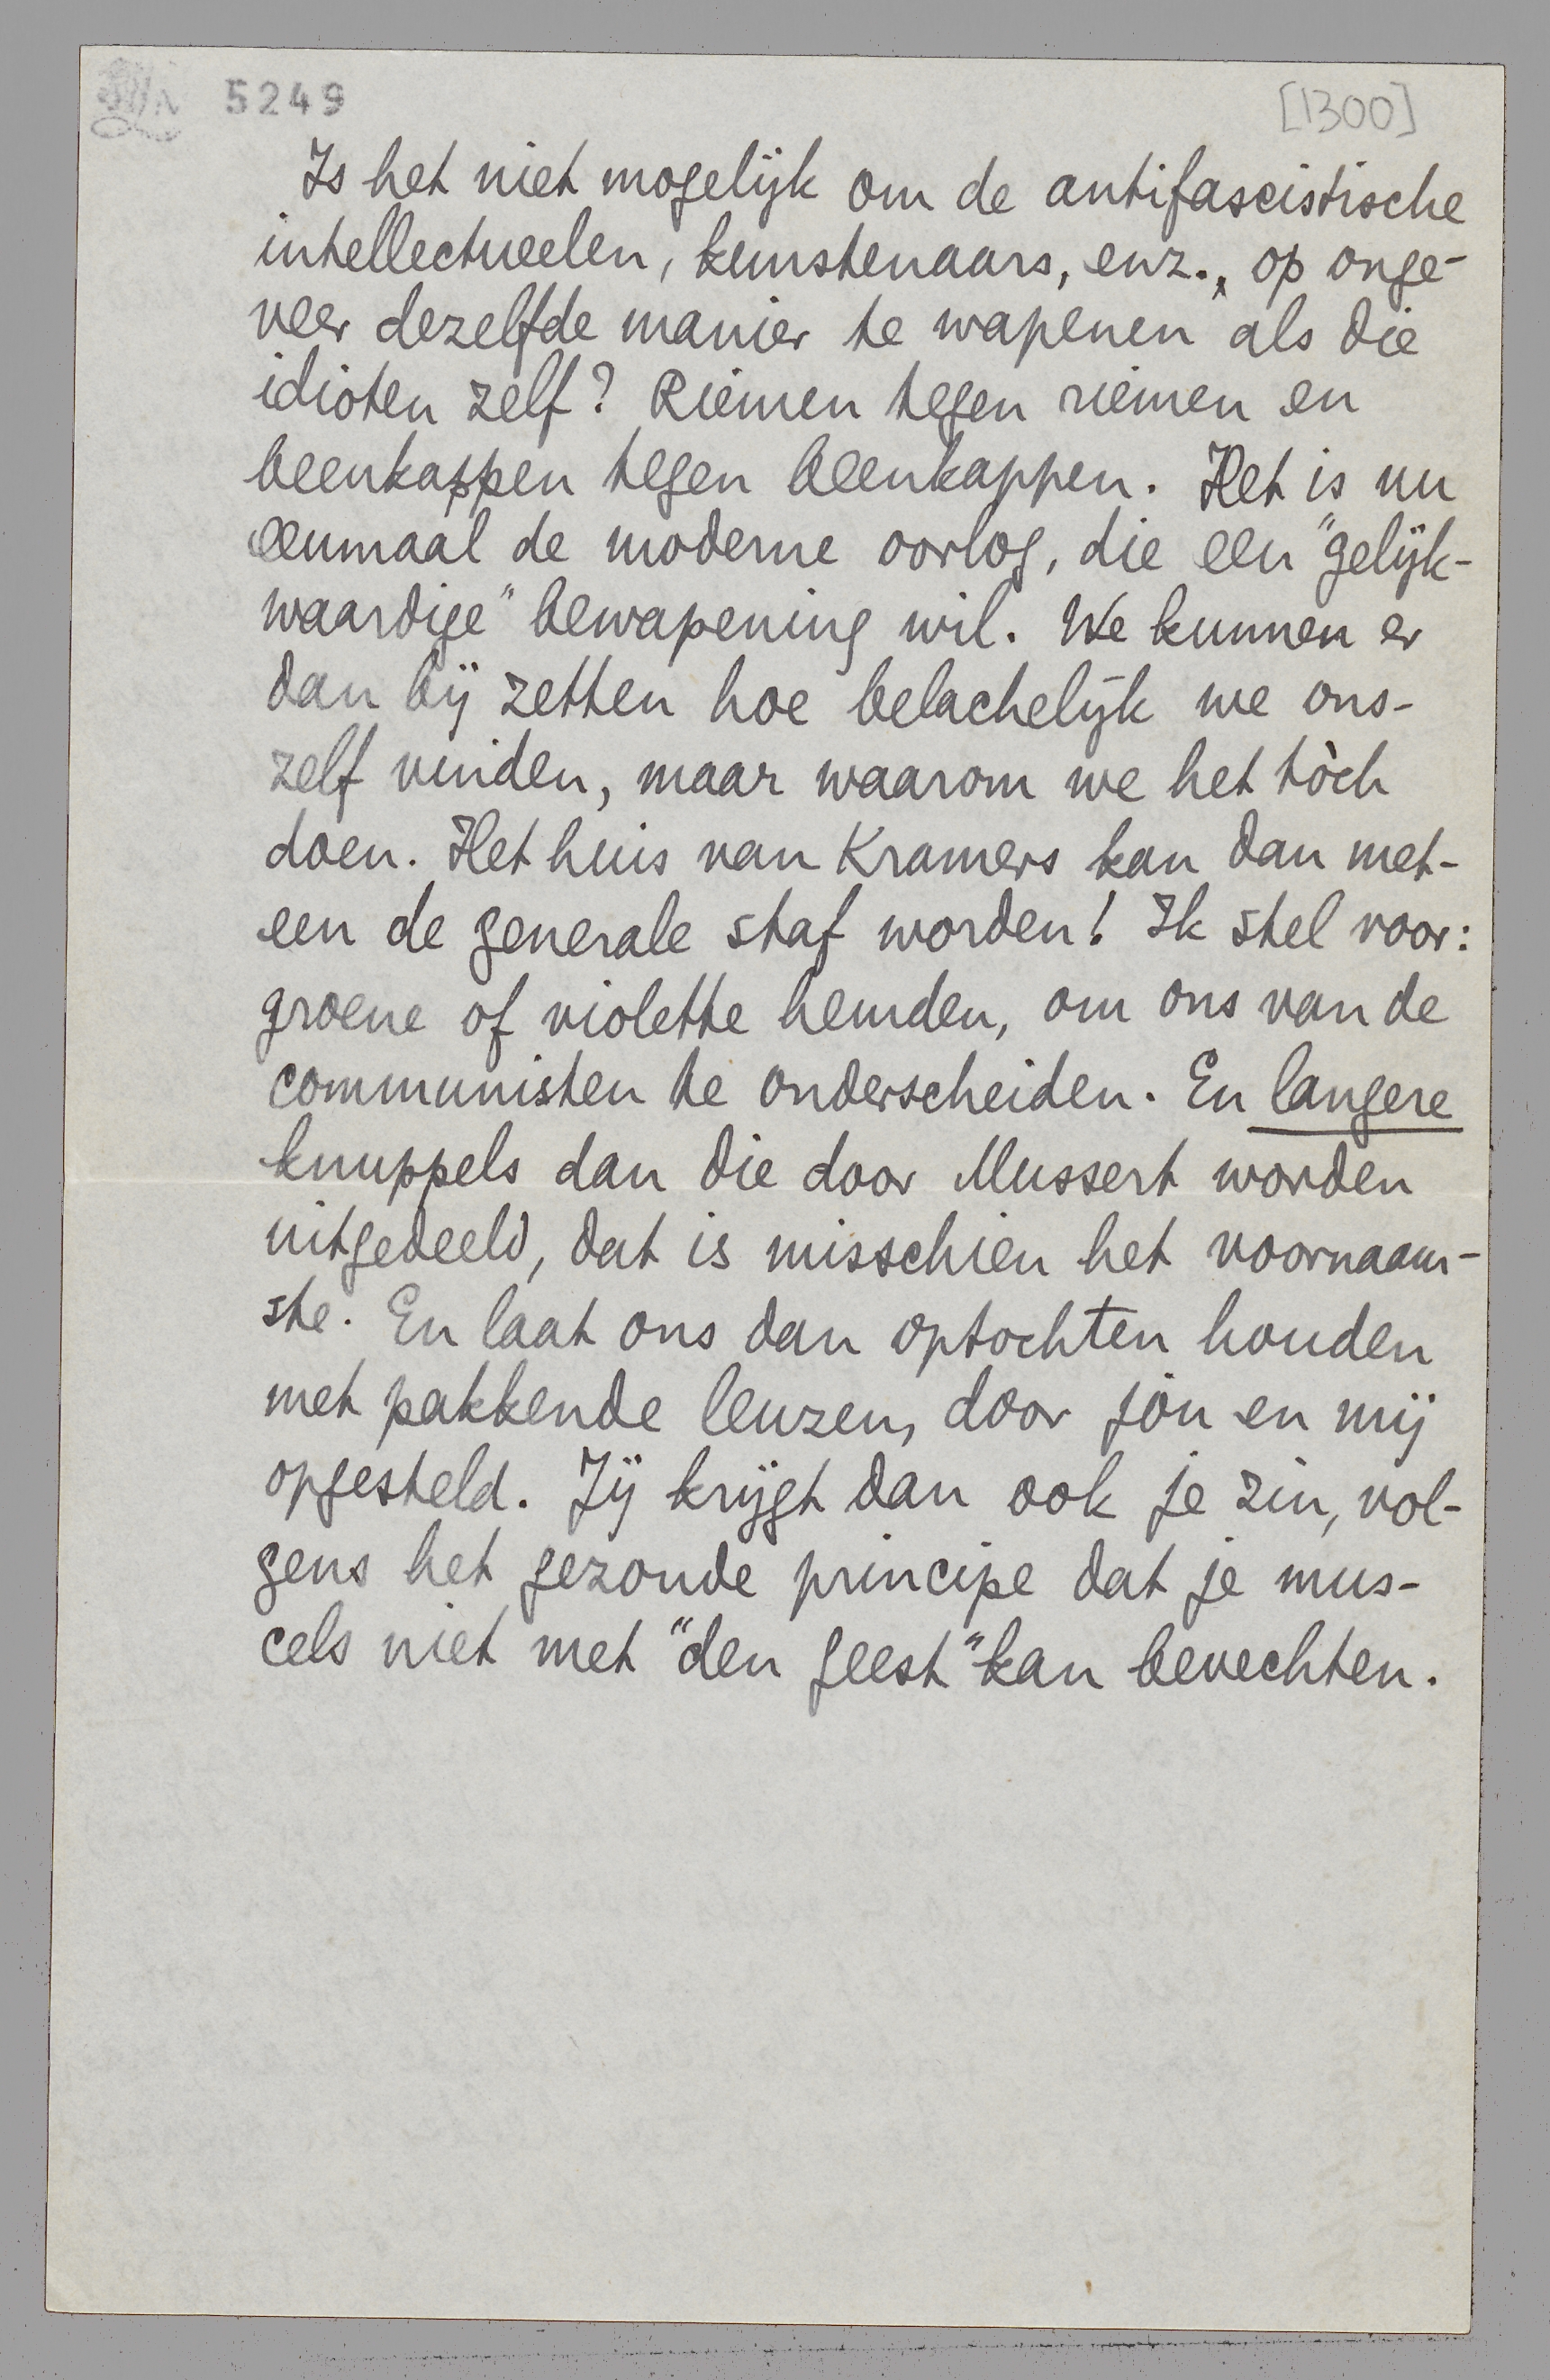 5249
[1300]
Is het niet mogelijk om de antifascistische
intellectueelen, kunstenaars, enz., op onge-
veer dezelfde manier te wapenen als die
idioten zelf? Riemen tegen riemen en
beenkappen tegen beenkappen. Het is nu
eenmaal de moderne oorlog, die een "gelijk-
waardige" bewapening wil. We kunnen er
dan bij zetten hoe belachelijk we ons-
zelf vinden, maar waarom we het tòch
doen. Het huis van Kramers kan dan met-
een de generale staf worden! Ik stel voor:
groene of violette hemden, om ons van de
communisten te onderscheiden. En langere
knuppels dan die door Mussert worden
uitgedeeld, dat is misschien het voornaam-
ste. En laat ons dan optochten houden
met pakkende leuzen, door jòu en mij
opgesteld. Jij krijgt dan ook je zin, vol-
gens het gezonde principe dat je mus-
cels niet met "den geest" kan bevechten.